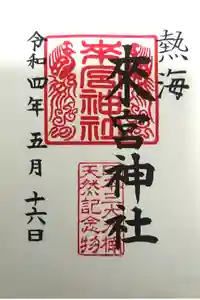 熱海
來宮神社
來宮神社
天然記念物
令和四年五月十六日